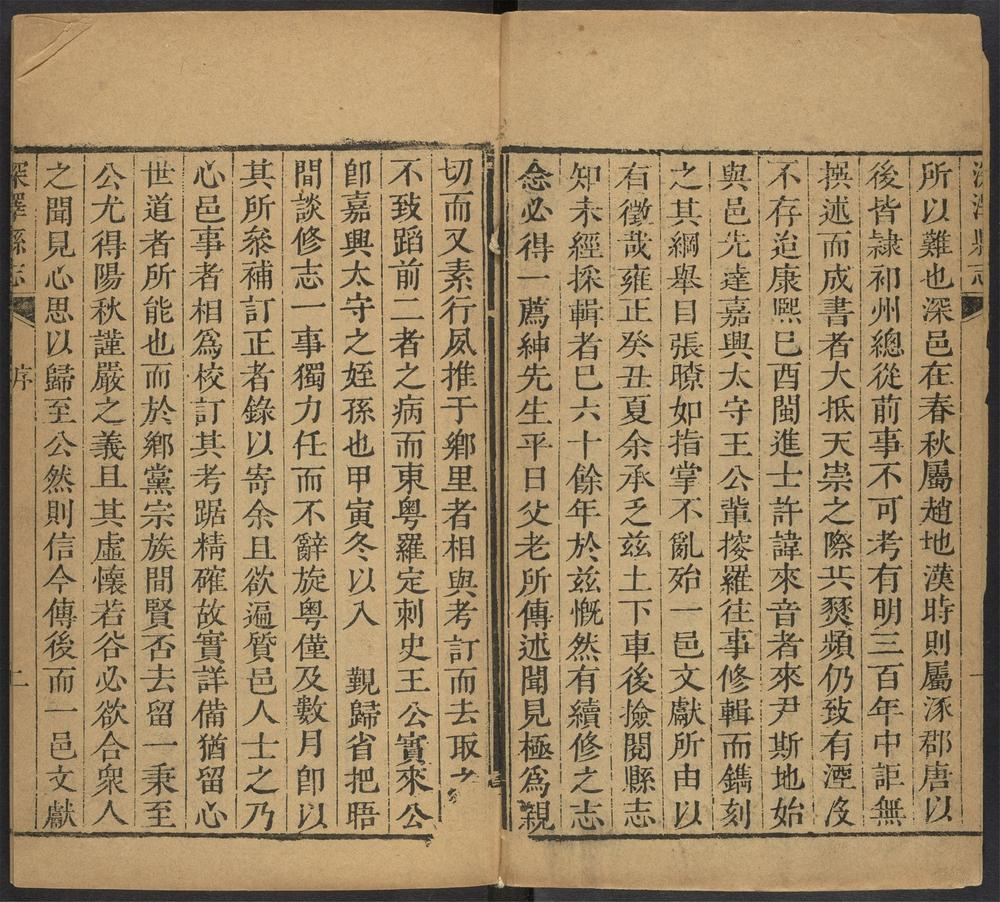 深澤縣志
所以難也深邑在春秋屬趙地漢時則屬涿郡唐以
後皆隷祁州總從前事不可考有明三百年中詎無
撰述而成書者大抵天崇之際兵燹頻仍致有湮沒
不存迨康熙巳酉閩進士許諱來音者來尹斯地始
與邑先達嘉興太守王公輩搜羅往事修輯而鐫刻
之其綱舉目張瞭如指掌不亂殆一邑文獻所由以
有徵哉雍正癸丑夏余承乏兹土下車後撿閱縣志
知未經採輯者巳六十餘年於兹慨然有續修之志
念必得一薦紳先生平日父老所傳述聞見極爲親
切而又素行夙推于鄉里者相與考訂而去取之
不致蹈前二者之病而東粤羅定刺史王公實來公
卽嘉興太守之姪孫也甲寅冬以入 覲歸省把晤
間談修志一事獨力任而不辭旋粤僅及數月卽以
其所叅補訂正者錄以寄余且欲遍質邑人士之乃
心邑事者相爲校訂其考踞精確故實詳備猶留心
世道者所能也而於鄉黨宗族間賢否去留一秉至
公尤得陽秋謹嚴之義且其虛懷若谷必欲合衆人
之聞見心思以歸至公然則信今傳後而一邑文獻
深澤縣志 序 二